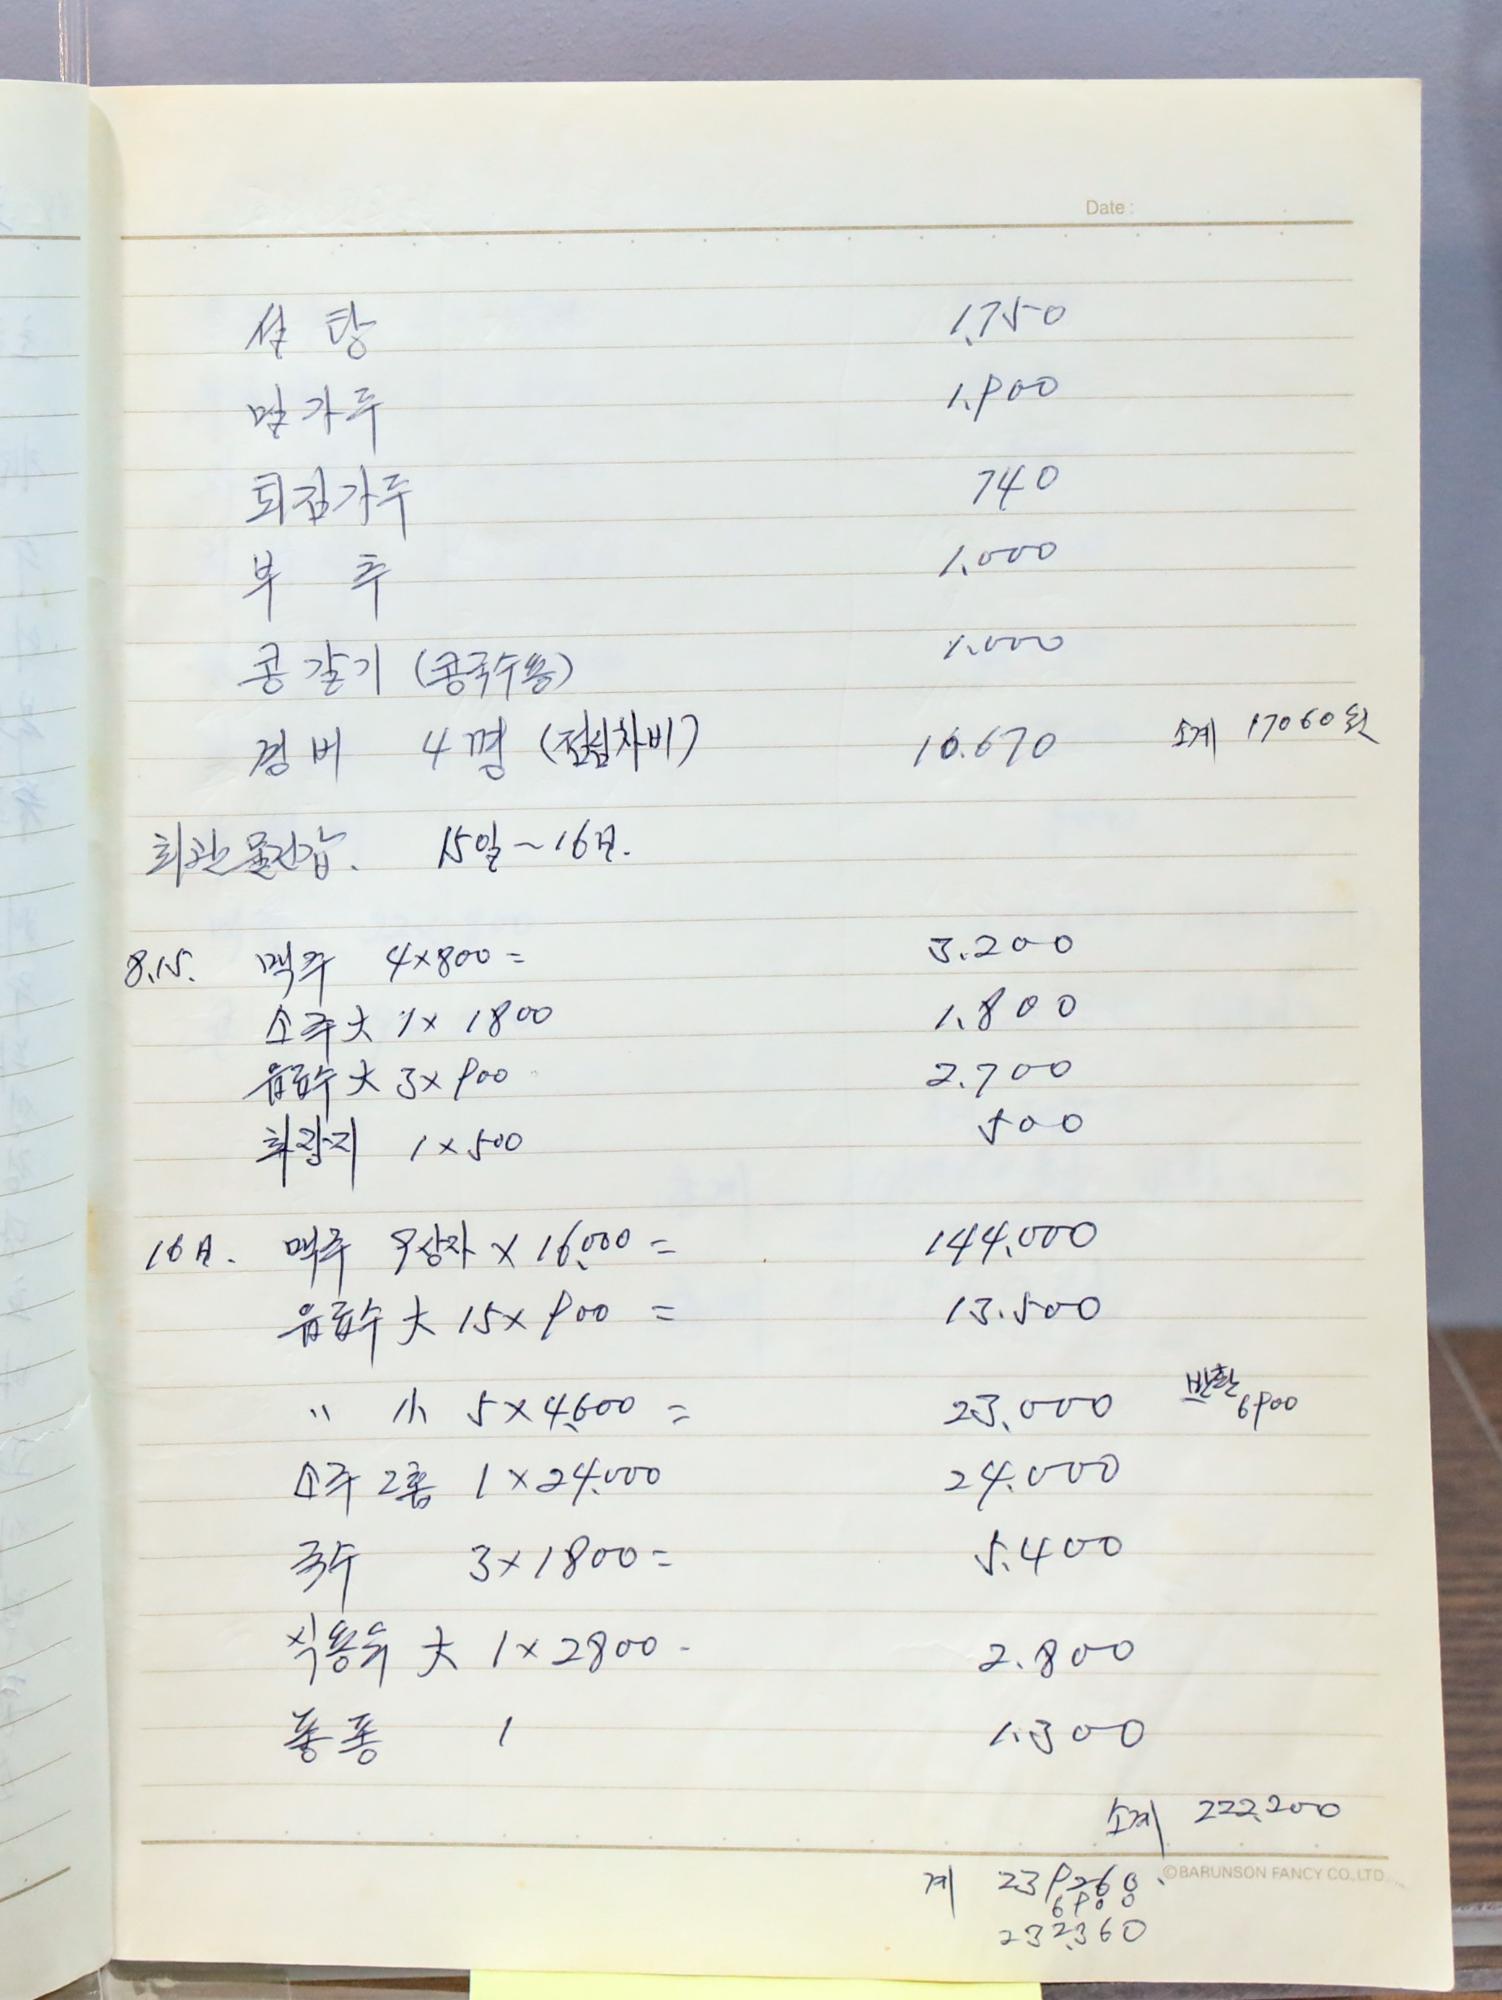 Date :
설탕 1,750
밀가루 1.900
튀김가루 740
부추 1.000
콩갈기 (콩국수용) 1.000
경비 4명 (점심차비) 10.670 소계 17060원
회관물건값. 15일~16일.
8.15. 맥주 4×800= 3.200
소주大 1×1800 1.800
음료수大 3×900 2.700
화장지 1×500 500
16일. 맥주 9상자×16,000= 144.000
음료수大 15×900= 13.500
〃 小 5×4,600= 23.000 반환 6900
소주2홉 1×24,000 24.000
국수 3×1800= 5.400
식용유大 1×2800- 2.800
퐁퐁 1 1.300
소계 222,200
계 239,260.
©BARUNSON FANCY CO.,LTD.
6900
232,360